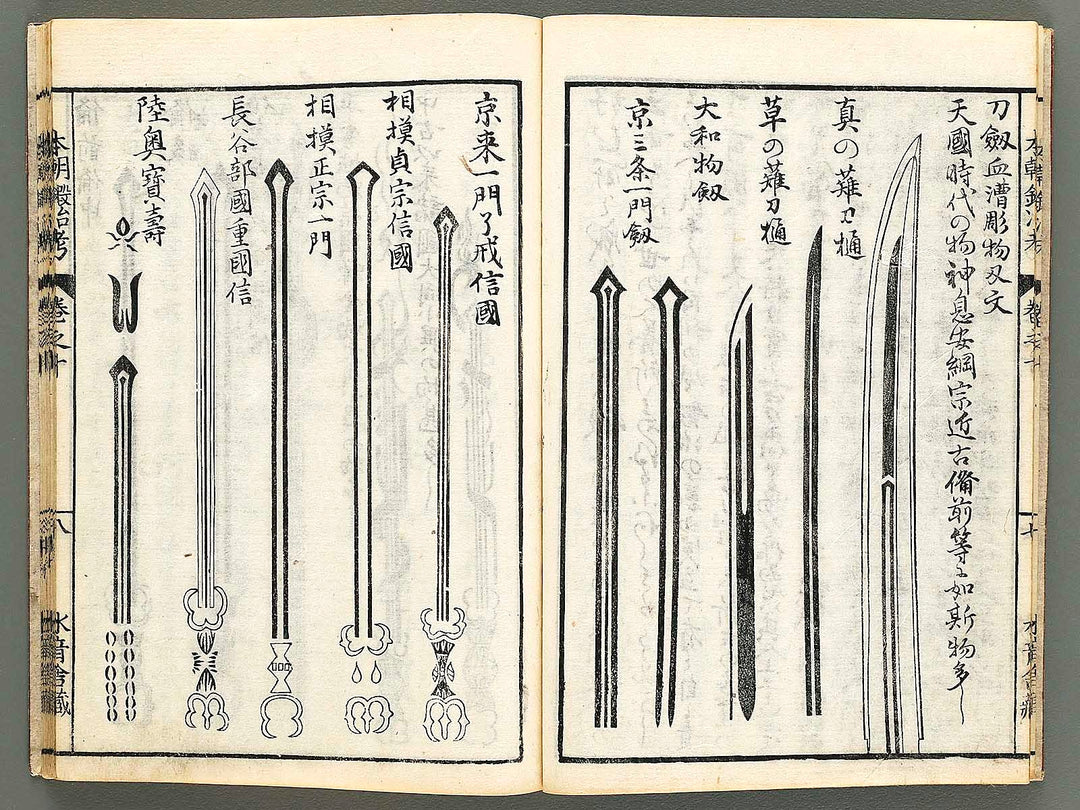 刀劔血漕彫物刃文
天國時代の物神息安綱宗近古備前等ニ如斯物多し
真の薙刀樋
草の薙刀樋
大和物劔
京三条一門劔
京来一門了戒信國
相摸貞宗信國
相摸正宗一門
長谷部國重國信
陸奥寶壽
本朝鍛冶考
巻之十
八
水音舎蔵